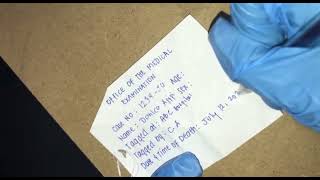 OFFICE OF THE MEDICAL
EXAMINATION
Case No: 1234-JU Age:
Name: Sex:
Tagged at: ABC
Tagged by: C.A
Date & Time of Death: July 12, 20